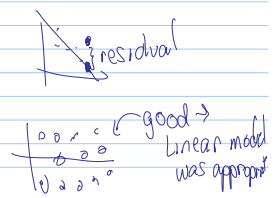 residual
good →
Linear model
was appropri